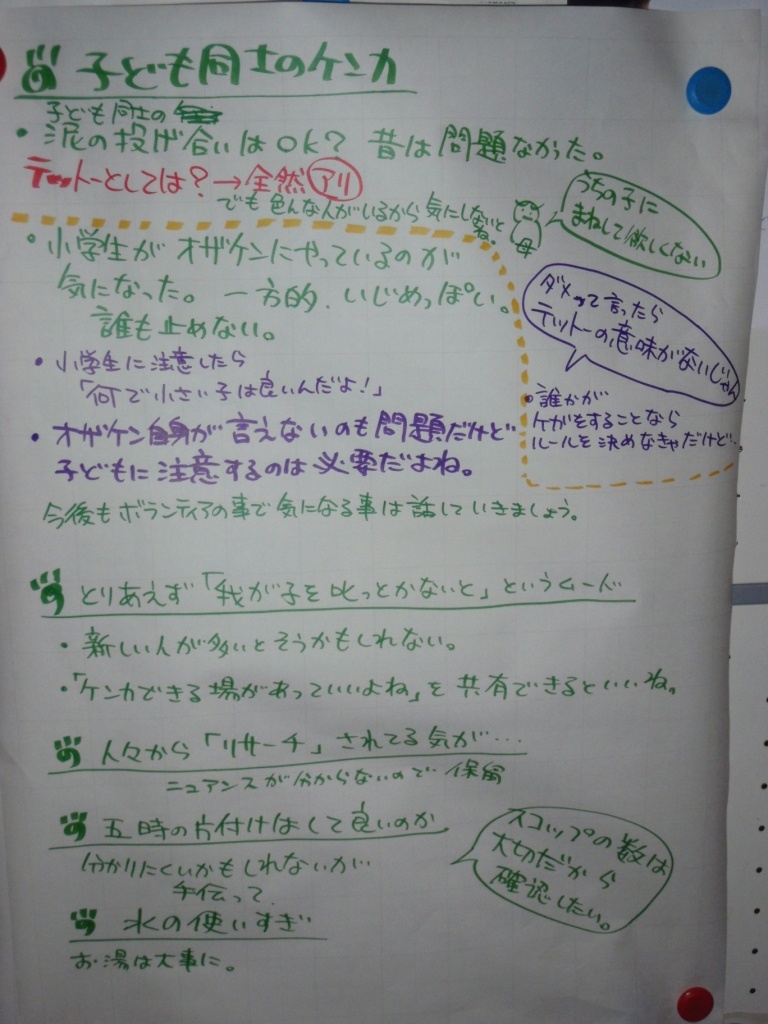 子ども同士のケンカ
子ども同士の
・泥の投げ合いはOK? 昔は問題なかった。
テットーとしては?→全然アリ
でも色んな人がいるから気にしないとね。
母
うちの子に
まねして欲しくない
・小学生がオザケンにやっているのが
気になった。一方的、いじめっぽい。
誰も止めない。
ダメって言ったら
テットーの意味がないじゃん
・小学生に注意したら
「何で小さい子は良いんだよ!」
・誰かが
ケガをすることなら
ルールを決めなきゃだけど…
・オザケン自身が言えないのも問題だけど
子どもに注意するのは必要だよね。
今後もボランティアの事で気になる事は話していきましょう。
とりあえず「我が子を叱っとかないと」というムード
・新しい人が多いとそうかもしれない。
・「ケンカできる場があっていいよね」を共有できるといいね。
人々から「リサーチ」されてる気が…
ニュアンスが分からないので保留
五時の片付けはして良いのか
分かりにくいかもしれないが…
手伝って
スコップの数は
大切だから
確認したい。
水の使いすぎ
お湯は大事に。